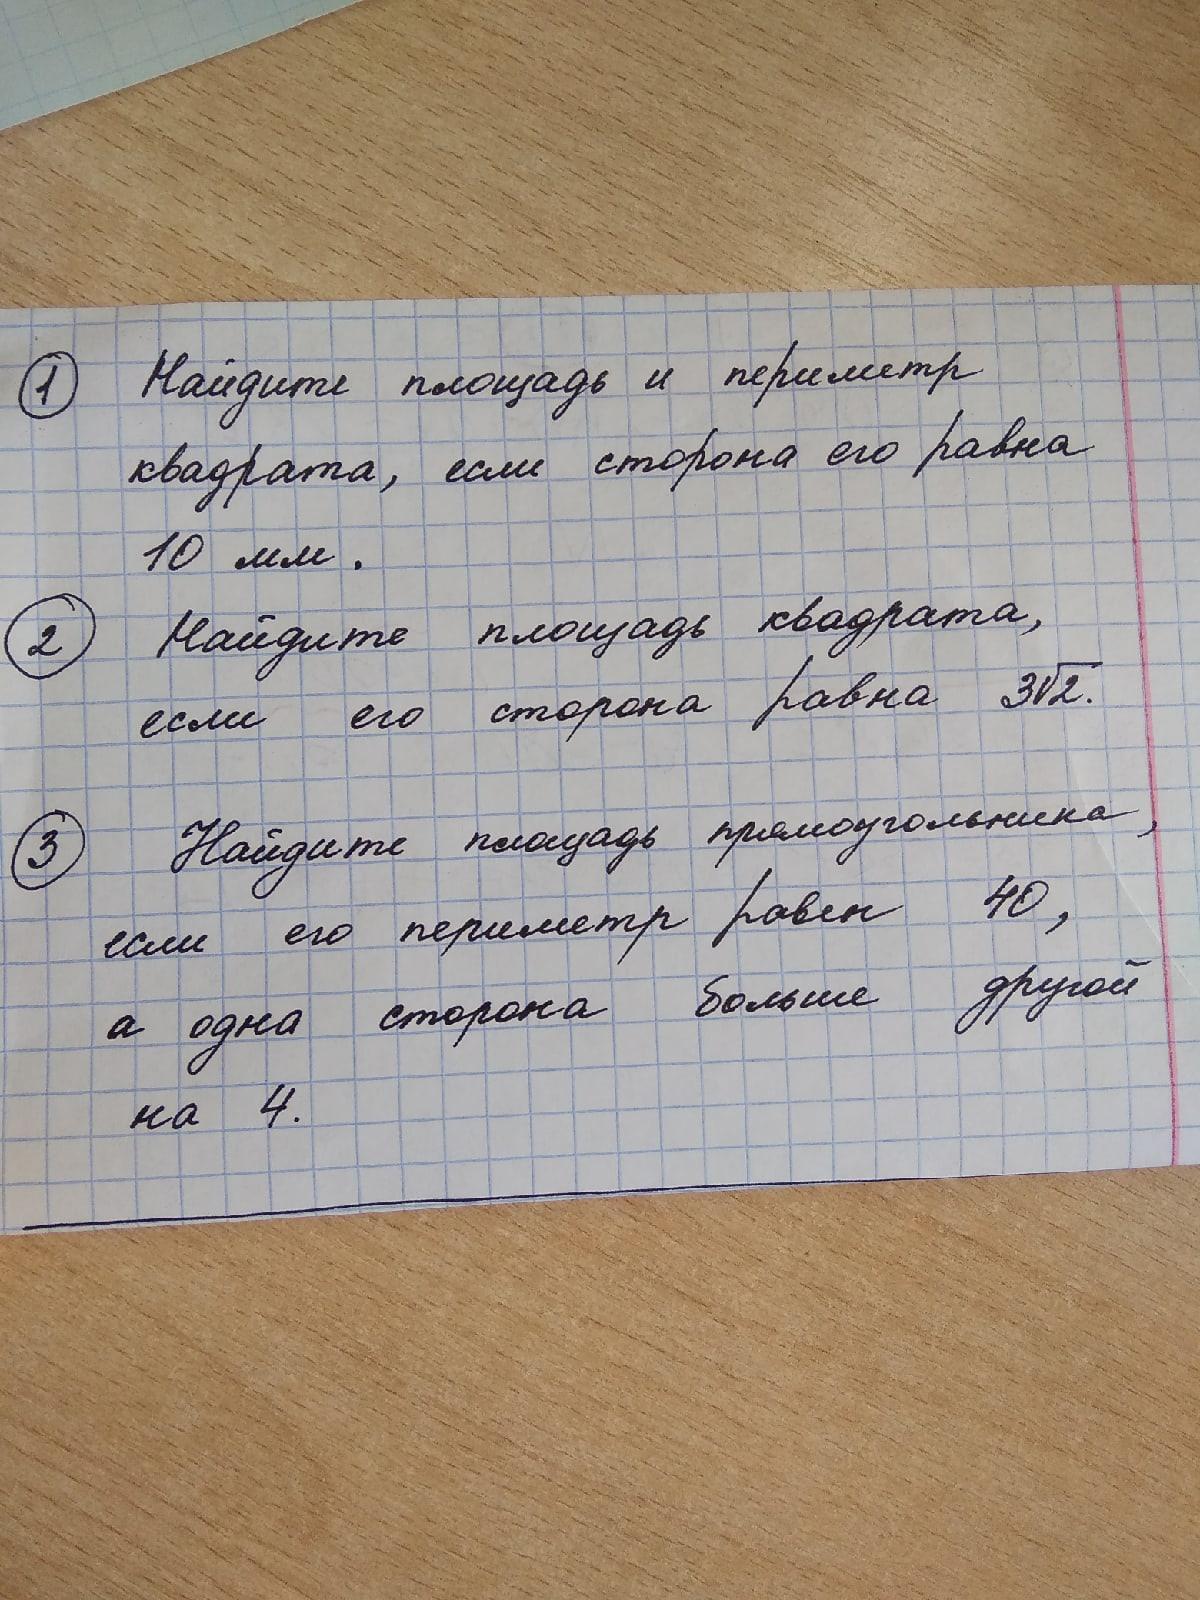 1 Найдите площадь и периметр
квадрата, если сторона его равна
10 мм.
2 Найдите площадь квадрата,
если его сторона равна 3√2.
3 Найдите площадь прямоугольника,
если его периметр равен 40,
а одна сторона больше другой
на 4.